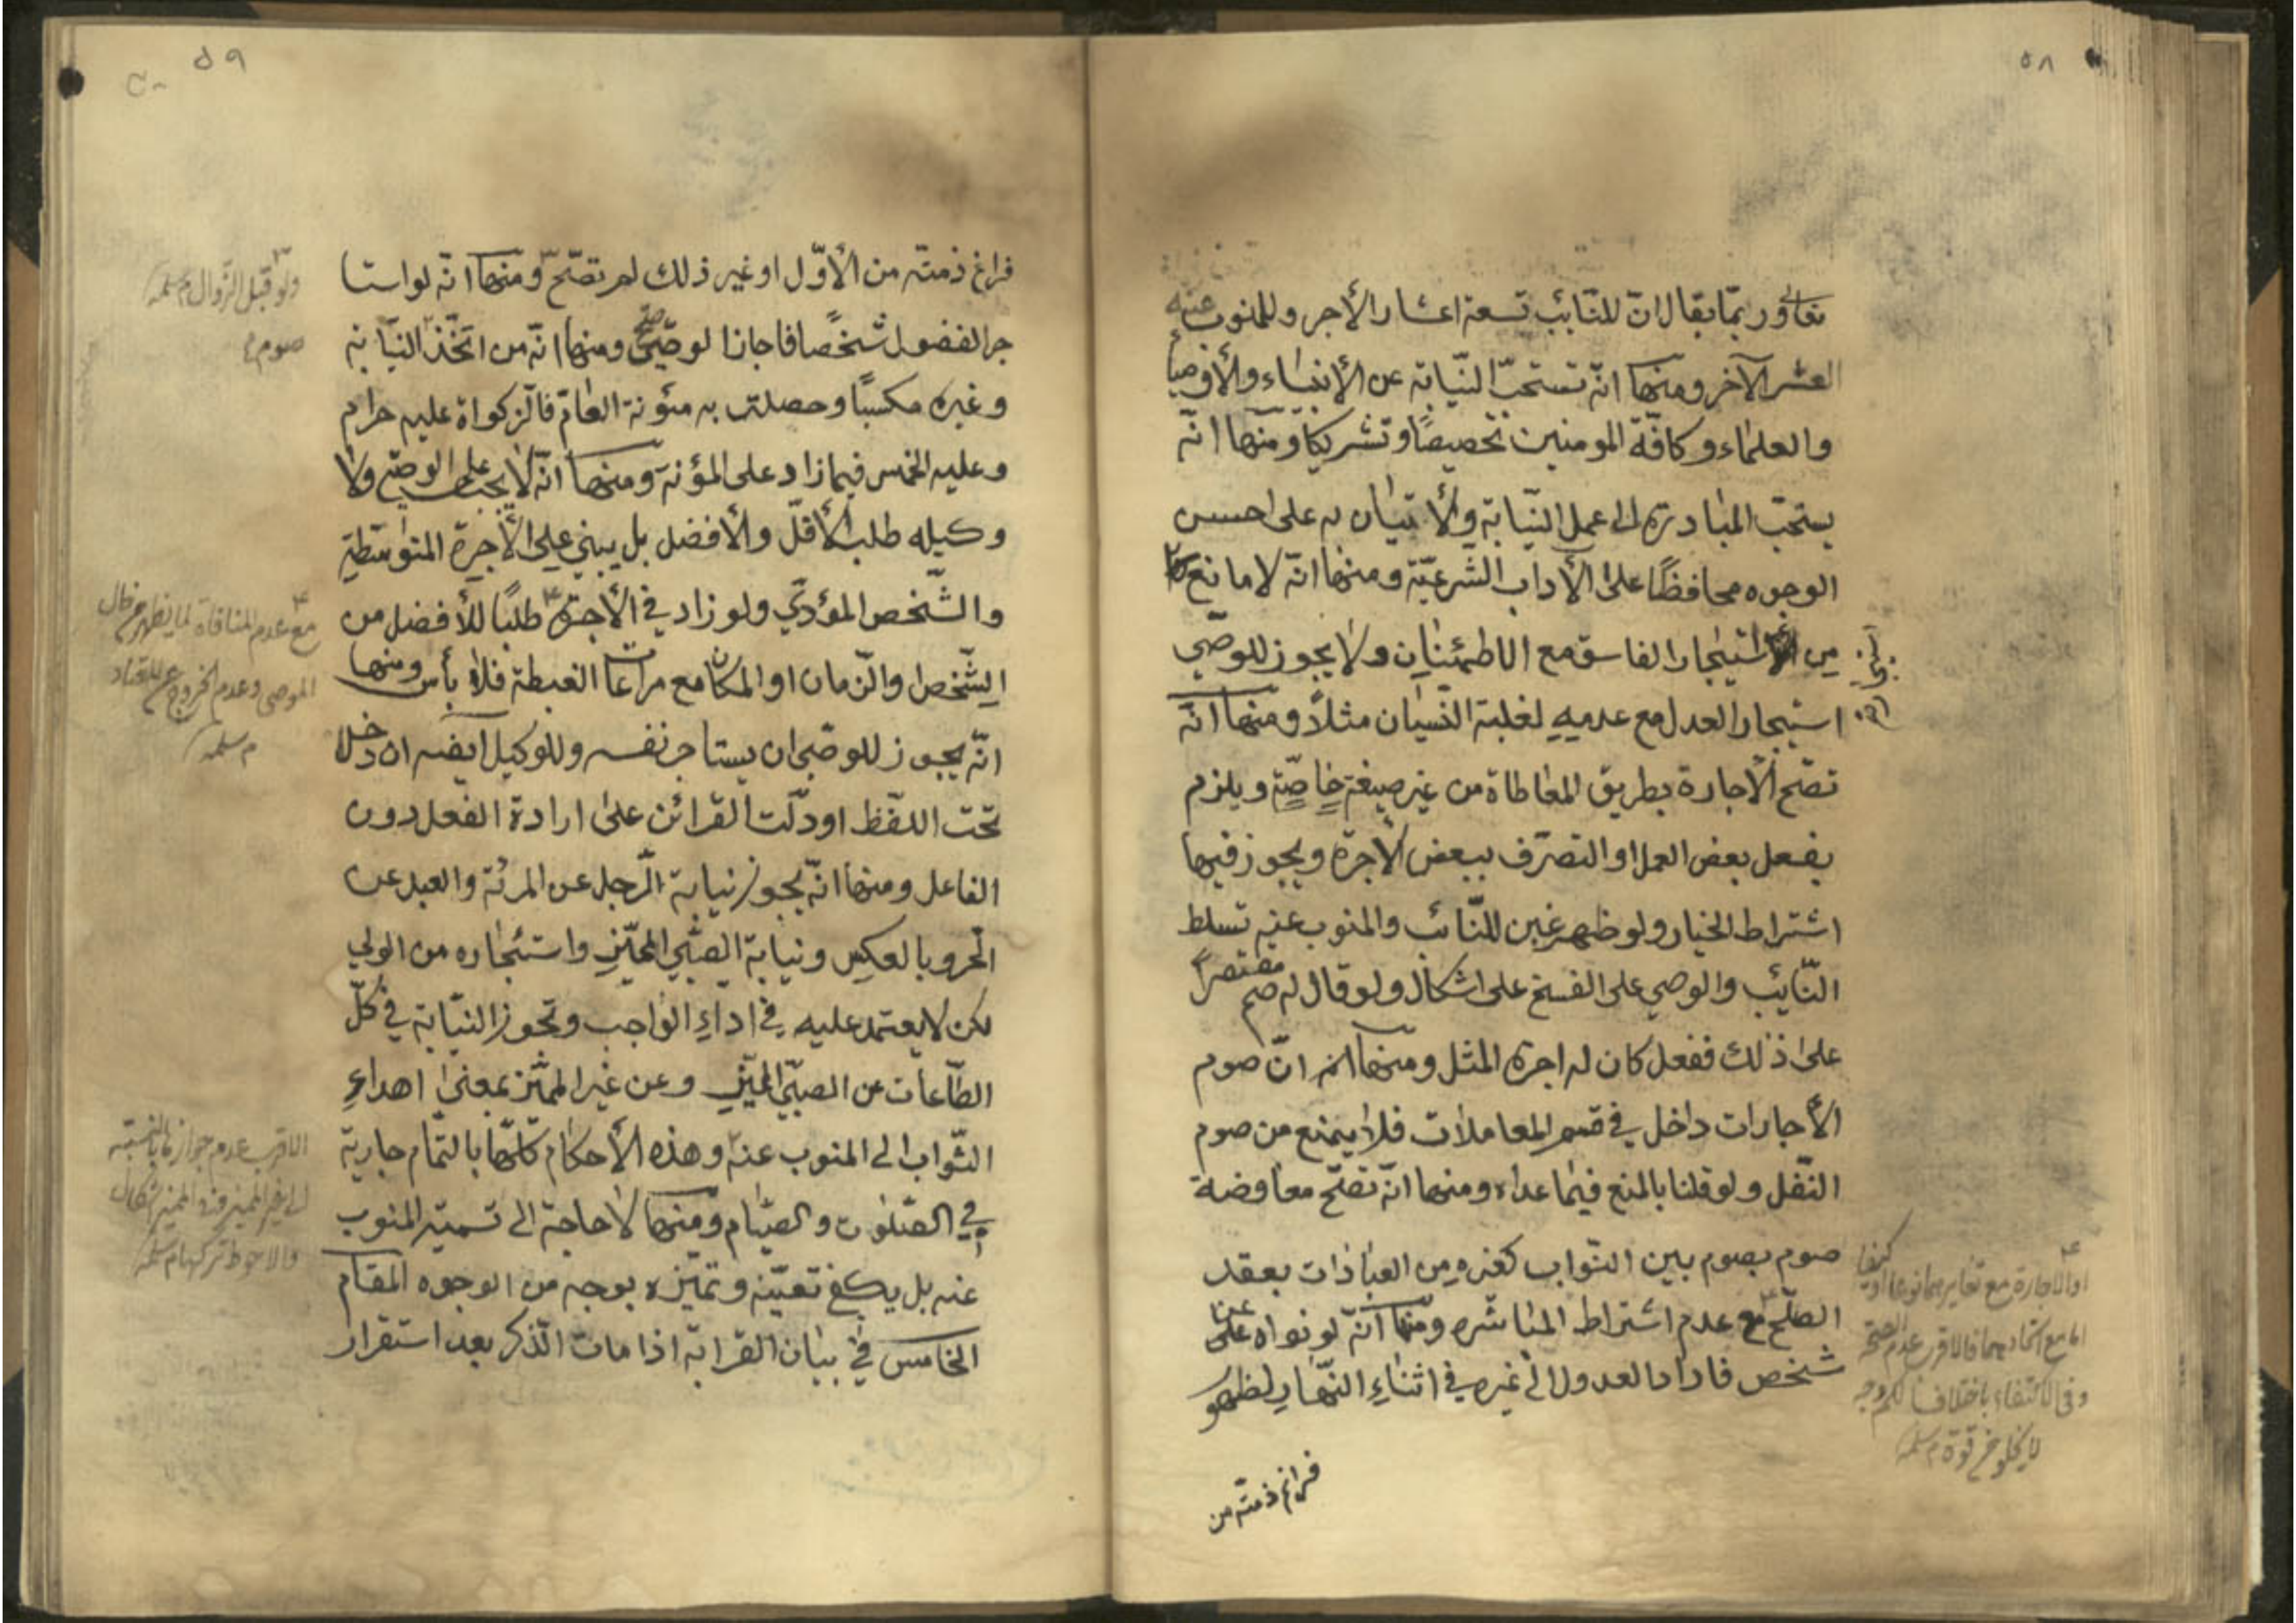 ٥٨
تفاور بما يقال ان للنّائب تسعة اعشار الأجر وللمنوب عنه
العشر الآخر ومنها انّه تستحبّ النّيابة عن الأنبياء والأوصيآء
والعلماء وكافّة المومنين تخصيصًا وتشريكا ومنها انّه
يستحبّ المبادرة الى عمل النّيابة والأتيان به على احسن
الوجوه محافظًا على الأداب الشّرعيّة ومنها انّه لا مانع
من استيجار الفاسق مع الاطمئنان ولا يجوز للوصّي
استيجار العدل مع عدمه لغلبة النّسيان مثلاً ومنها انّه
تصّح الأجارة بطريق المعاطاة من غير صيغة خاصّة ويلزم
بفعل بعض العمل او التصرّف ببعض الأجرة ويجوز فيها
اشتراط الخيار ولو ظهر غبن للنّائب والمنوب عنه تسلط
النّايب والوصي على الفسخ على اشكال ولو قال له صم مقتصراً
على ذلك ففعل كان له اجرة المثل ومنها انّ صوم
الأجارات داخل في قسم المعاملات فلا يمنع من صوم
النّفل ولو قلنا بالمنع فيما عداه ومنها انّه تصّح معاوضة
صوم بصوم بين النّواب كغيره من العبادات بعقد
الصّلح مع عدم اشتراط المباشره ومنها انّه لو نواه عن
شخص فاراد العدول الى غيره في اثناءِ النّهار لظهور
فراغ ذمته من
او الاجارة مع تغايرهما نوعا او كيفا
اما مع اتحادهما فالاقرب عدم الصحة
وفى الاكتفاء باختلاف
لا يخلو من قوة م سلمه
٥٩
فراغ ذمته من الأوّل او غير ذلك لم تصّح ومنها انّه لو استا
جر الفضول شخصًا فاجاز الوصّي صح ومنها انّه من اتّخذ النّيابة
وغيره مكسبًا وحصلت به مئونة العام فالزكواة عليه حرام
وعليه الخمس فيما زاد على المؤنة ومنها انّه لا يجب على الوصي ولا
وكيله طلب الأقلّ والأفضل بل يبني على الأجرة المتوسّطة
والشّخص المؤدّي ولو زاد في الأجرة طلبًا للأفضل من
الشّخص والزّمان او المكان مع مراعات الغبطة فلا بأس ومنها
انّه يجوز للوصّي ان يستاجر نفسه وللوكيل ايضه ان دخل
تحت اللّفظ او دلّت القرائن على ارادة الفعل دون
الفاعل ومنها انّه يجوز نيابة الرّجل عن المرئة والعبد عن
الحرو بالعكس ونيابة الصّبّي المميّز واستئجاره من الولي
لكن لا يعتمد عليه في اداءِ الواجب وتجوز النّيابة في كلّ
الطّاعات عن الصبّي المميّز وعن غير المميّز بمعنى اهداءِ
الثّواب الى المنوب عنه وهذه الأحكام كلّها بالتّمام جارية
في الصّلوت والصيّام ومنها لا حاجة الى تسمية المنوب
عنه بل يكفي تعيّنه وتميّزه بوجه من الوجوه المقام
الخامس في بيان القرابة اذا مات الذّكر بعد استقرار
ولو قبل الزوال م سلمه
صوم
مع عدم المنافاة لما يظهر من حال
الموصى وعدم الخروج عن المعتاد
م سلمه
الاقرب عدم جوازها بالنسبة
الى غير المميز وفى المميز اشكال
والاحوط تركها م سلمه